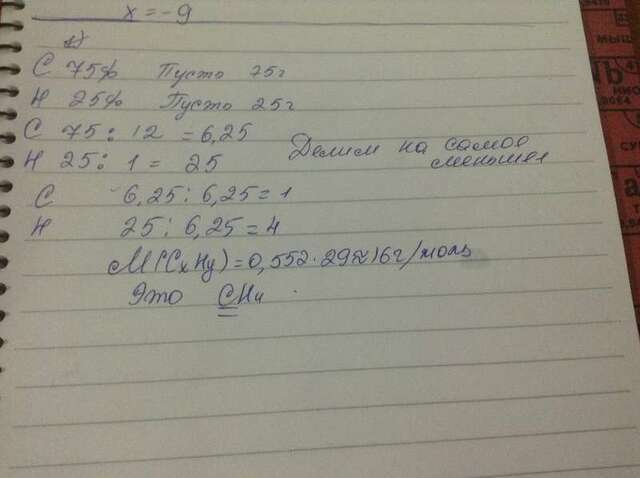 x = -9
1)
C 75% Пусто 75г
H 25% Пусто 25г
C 75 : 12 = 6,25
H 25 : 1 = 25 Делим на самое меньшее
C 6,25 : 6,25 = 1
H 25 : 6,25 = 4
M(CxHy) = 0,552 · 29 ≈ 16г/моль
Это CH4